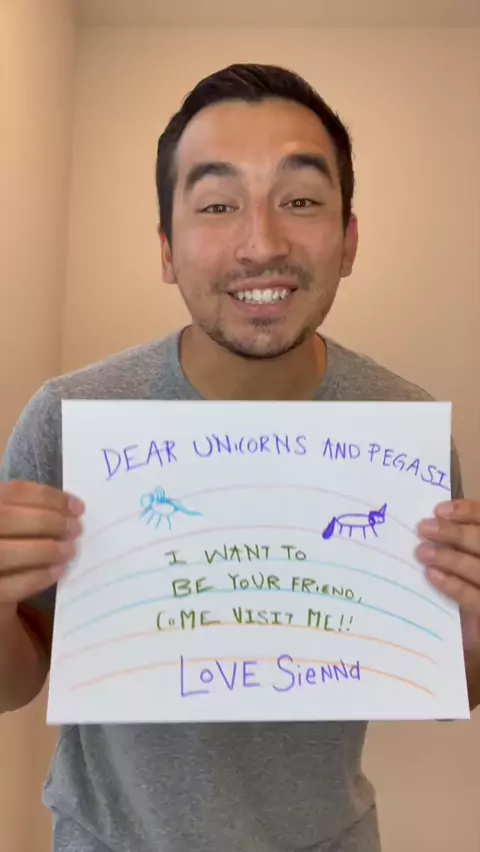 DEAR UNICORNS AND PEGASI
I WANT TO
BE YOUR FRIEND,
COME VISIT ME!!
LOVE SieNNa